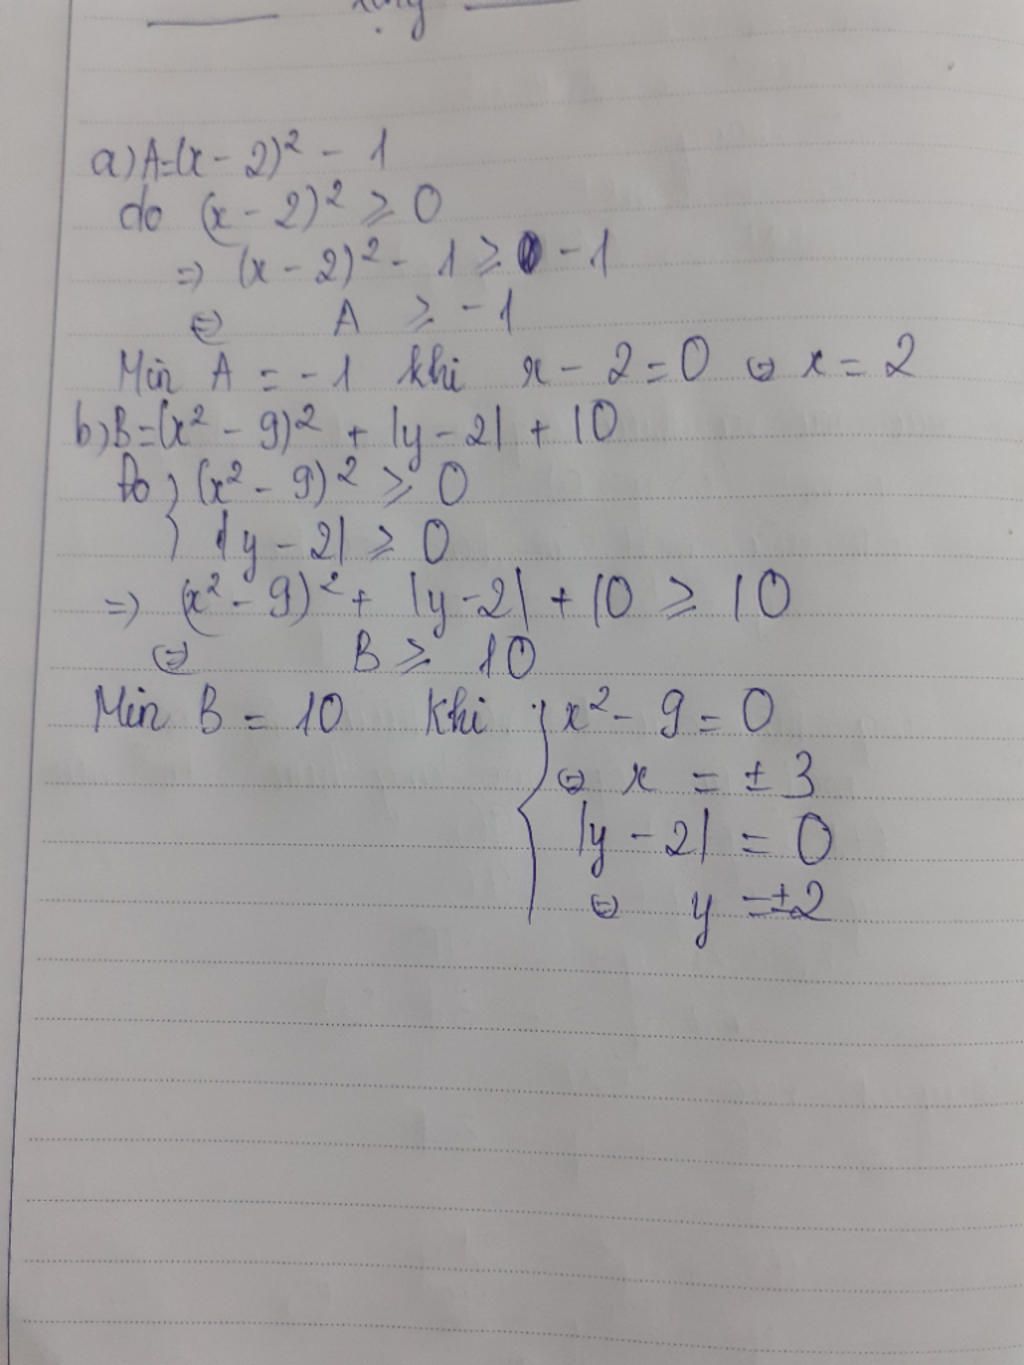 a) A=(x - 2)² - 1
do (x - 2)² ≥ 0
=> (x - 2)² - 1 ≥ - 1
⇔ A ≥ - 1
Min A = - 1 khi x - 2 = 0 ⇔ x = 2
b) B=(x² - 9)² + |y - 2| + 10
Do } (x² - 9)² ≥ 0
|y - 2| ≥ 0
=> (x² - 9)² + |y - 2| + 10 ≥ 10
⇔ B ≥ 10
Min B = 10 khi { x² - 9 = 0
⇔ x = ± 3
|y - 2| = 0
⇔ y = ±2